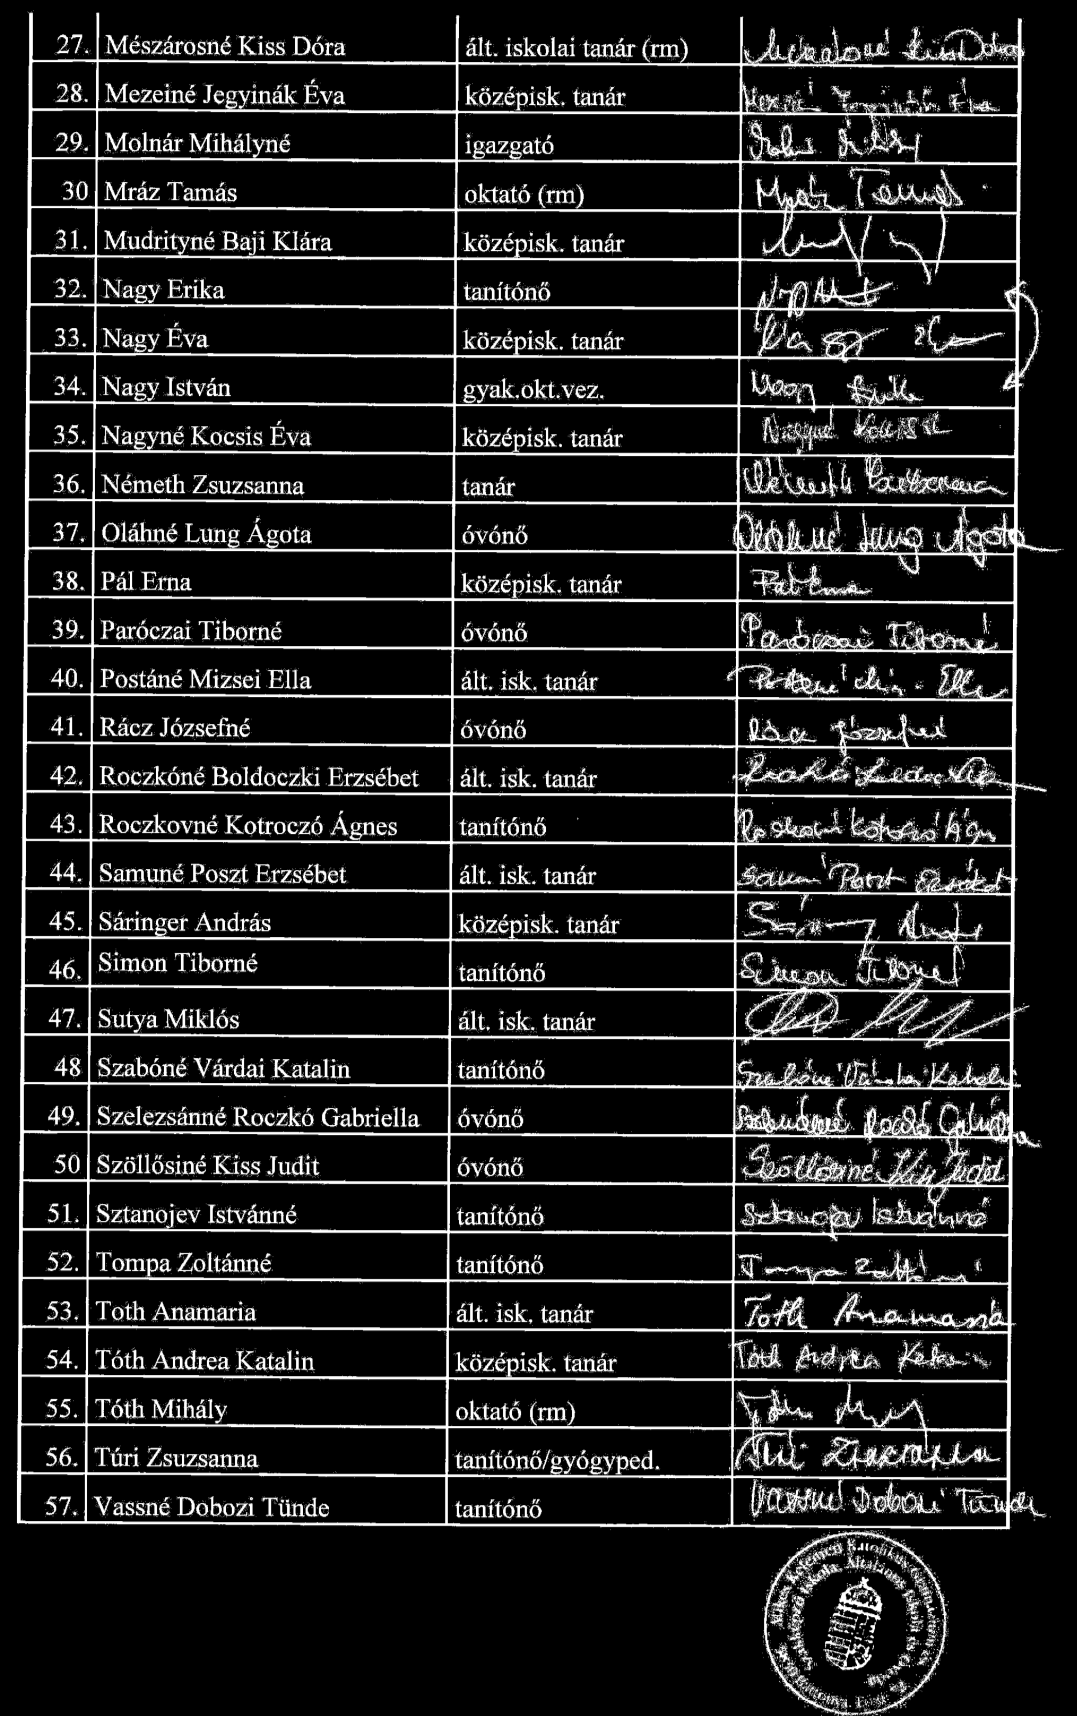 27. Mészárosné Kiss Dóra ált. iskolai tanár (rm)
28. Mezeiné Jegyinák Éva középisk. tanár
29. Molnár Mihályné igazgató
30 Mráz Tamás oktató (rm) Mráz Tamás
31. Mudrityné Baji Klára középisk. tanár
32. Nagy Erika tanítónő
33. Nagy Éva középisk. tanár
34. Nagy István gyak.okt.vez. Nagy Erika
35. Nagyné Kocsis Éva középisk. tanár Nagyné Kocsis É
36. Németh Zsuzsanna tanár Németh Zsuzsanna
37. Oláhné Lung Ágota óvónő Oláhné Lung Ágota
38. Pál Erna középisk. tanár Pál Erna
39. Paróczai Tiborné óvónő Paróczai Tiborné
40. Postáné Mizsei Ella ált. isk. tanár
41. Rácz Józsefné óvónő Rácz Józsefné
42. Roczkóné Boldoczki Erzsébet ált. isk. tanár
43. Roczkovné Kotroczó Ágnes tanítónő
44. Samuné Poszt Erzsébet ált. isk. tanár
45. Sáringer András középisk. tanár
46. Simon Tiborné tanítónő Simon Tiborné
47. Sutya Miklós ált. isk. tanár
48 Szabóné Várdai Katalin tanítónő Szabóné Várdai Katalin
49. Szelezsánné Roczkó Gabriella óvónő
50 Szöllősiné Kiss Judit óvónő Szöllősiné Kiss Judit
51. Sztanojev Istvánné tanítónő Sztanojev Istvánné
52. Tompa Zoltánné tanítónő Tompa Zoltánné
53. Toth Anamaria ált. isk. tanár Toth Anamaria
54. Tóth Andrea Katalin középisk. tanár Tóth Andrea Katalin
55. Tóth Mihály oktató (rm)
56. Túri Zsuzsanna tanítónő/gyógyped. Túri Zsuzsanna
57. Vassné Dobozi Tünde tanítónő Vassné Dobozi Tünde